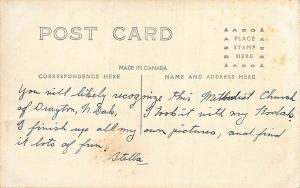 POST CARD
PLACE
STAMP
HERE
MADE IN CANADA
CORRESPONDENCE HERE
NAME AND ADDRESS HERE
You will likely recognize this Methodist Church
of Drayton, N. Dak, I took it with my Kodak
I finish up all my own pictures, and find
it lots of fun.
Stella